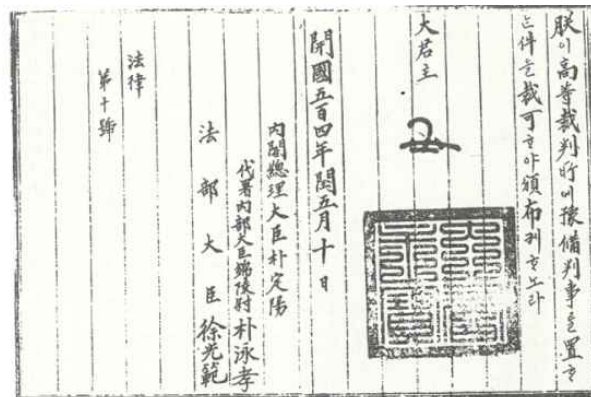 朕이高等裁判所에豫備判事를置ᄒᆞ
ᄂᆞᆫ件을裁可ᄒᆞ야頒布케ᄒᆞ노라
大君主
開國五百四年閏五月十日
內閣總理大臣朴定陽
代署內部大臣錦陵尉朴泳孝
法部大臣徐光範
法律
第十號